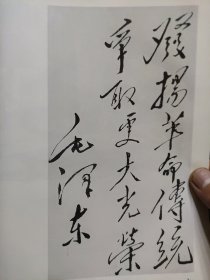 發揚革命傳統
争取更大光榮
毛澤东